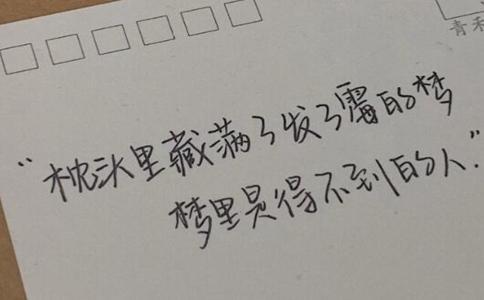 青和
“枕头里藏满了发了霉的梦
梦里是得不到的人.”